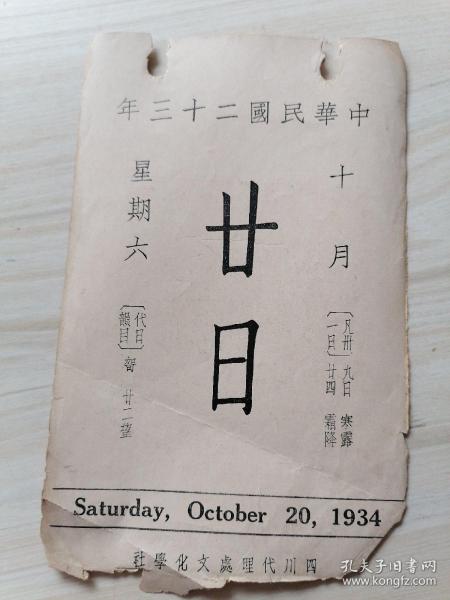 中華民國二十三年
十月
〔凡卅一日〕
九日 寒露
廿四 霜降
廿日
星期六
〔代日韻目〕
哿 廿二望
Saturday, October 20, 1934
四川代理處文化學社
孔夫子旧书网
www.kongfz.com